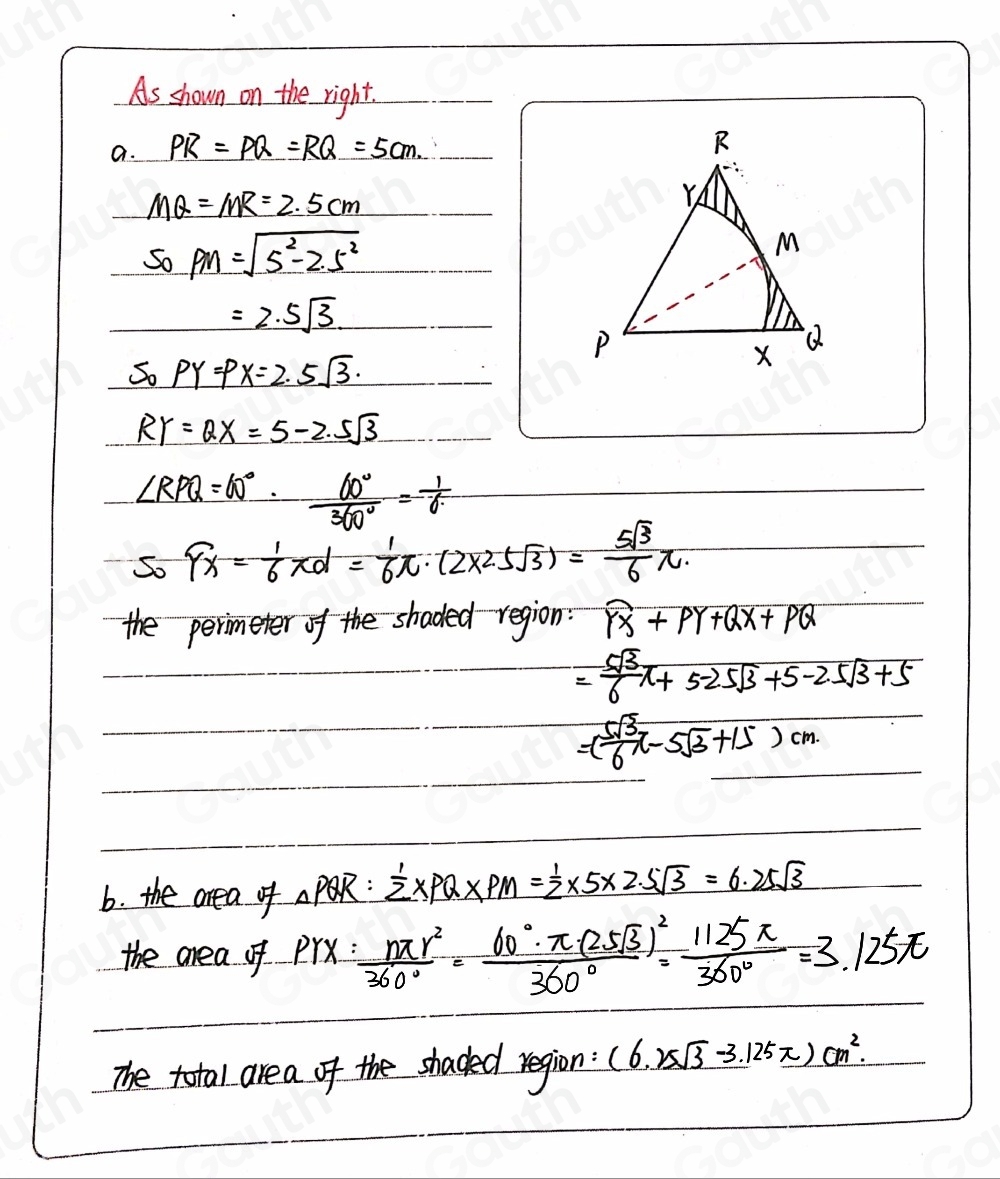 As shown on the right.
a. PR = PQ = RQ = 5cm.
MQ = MR = 2.5cm
So PM = √(5² - 2.5²)
= 2.5√3.
So PY = PX = 2.5√3.
RY = QX = 5 - 2.5√3
∠RPQ = 60°. 60°/360° = 1/6.
So YX = 1/6 πd = 1/6 π · (2×2.5√3) = 5√3/6 π.
the perimeter of the shaded region: YX + PY + QX + PQ
= 5√3/6 π + 5-2.5√3 + 5-2.5√3 + 5
= (5√3/6 π - 5√3 + 15) cm.
b. the area of △PQR: 1/2 × PQ × PM = 1/2 × 5 × 2.5√3 = 6.25√3
the area of PYX: nπr²/360° = 60°·π(2.5√3)²/360° = 1125π/360° = 3.125π
The total area of the shaded region: (6.25√3 - 3.125π) cm².
R
Y
M
P
X
Q
Gauth